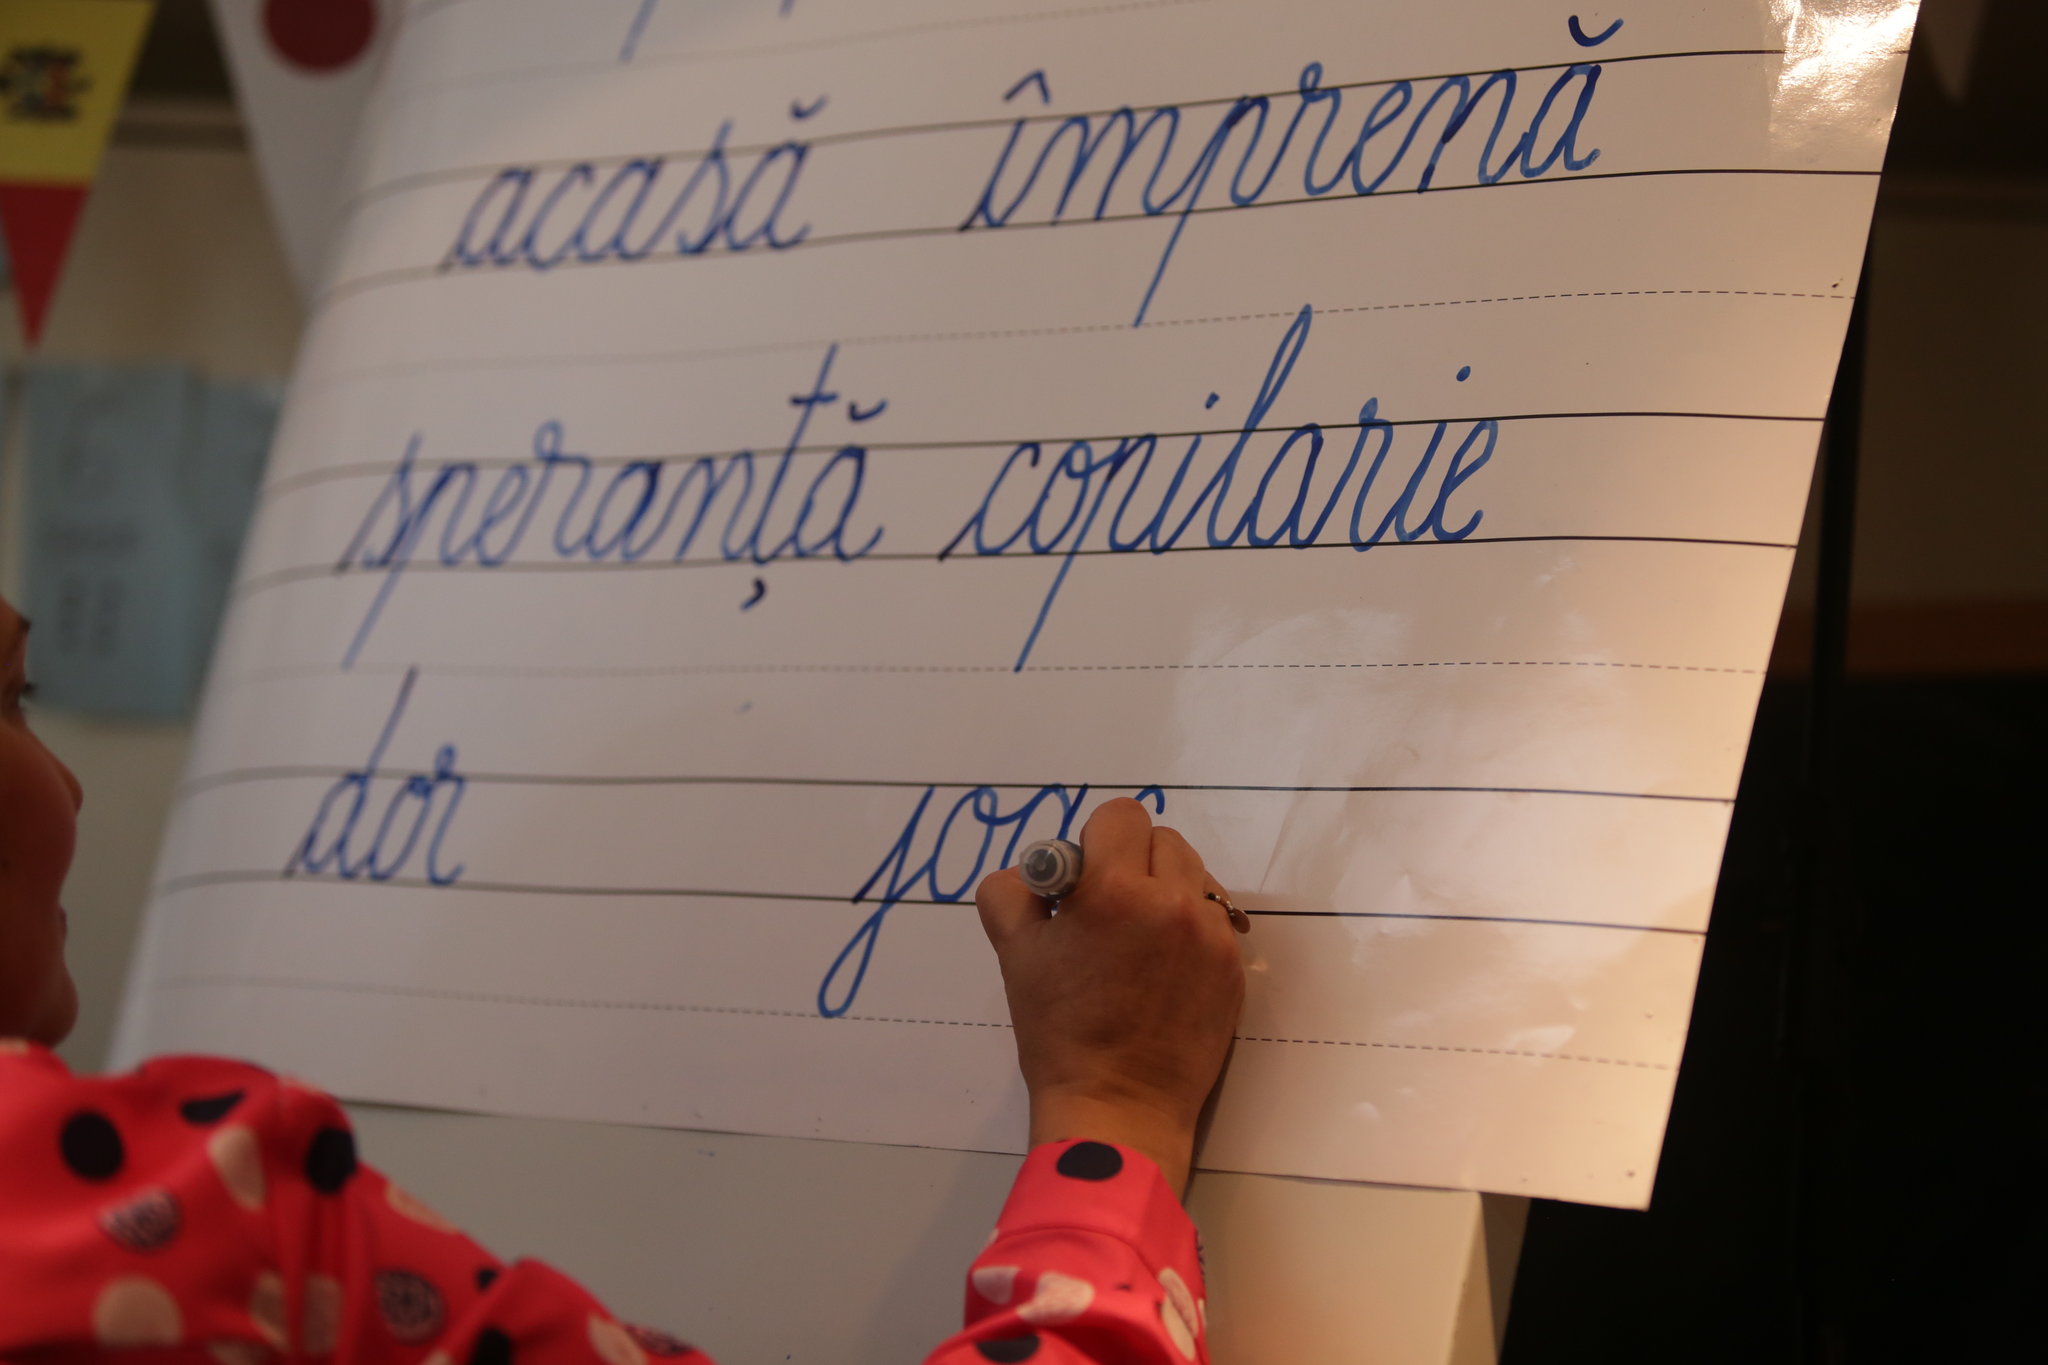 acasă împrenă
speranță copilarie
dor